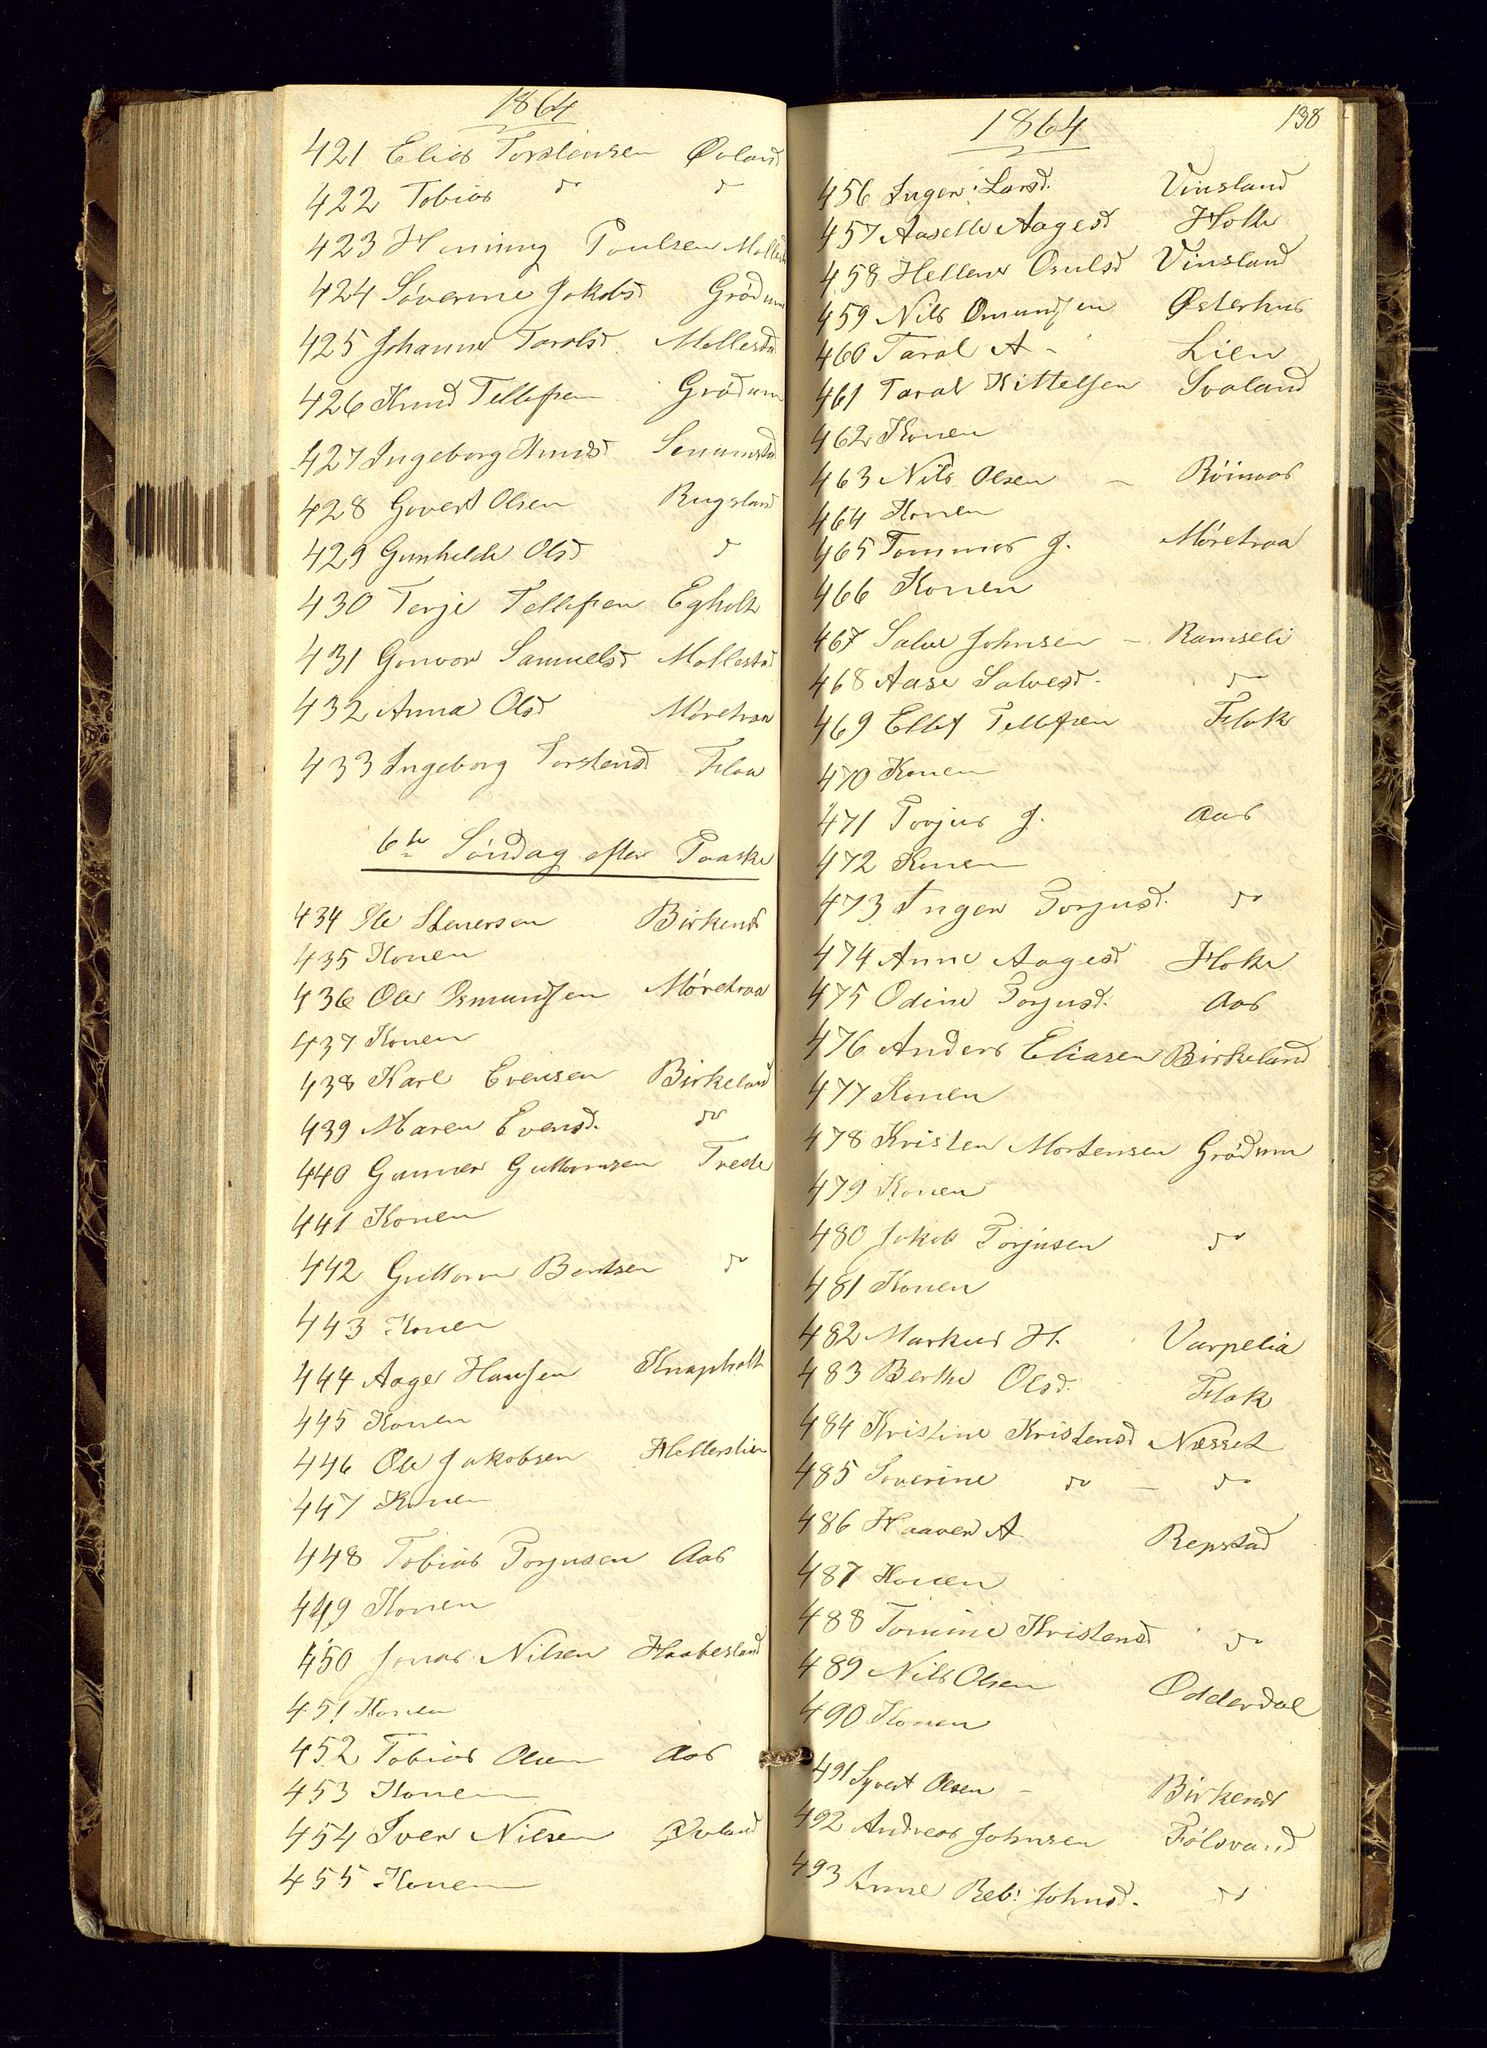 1864
421 Elias Torstensen Øvland
422 Tobias do do
423 Henning Poulsen Mollestd
424 Søverine Jakobsd Grødum
425 Johanne Tarolsd. Mollestd
426 Knud Tellefsen Grødum
427 Ingeborg Knudsd Senumstd
428 Govert Olsen Rugsland
429 Gunhilde Olsd do
430 Terje Tellefsen Egholt
431 Gonvor Samuelsd Mollestad
432 Anna Olsd Møretraa
433 Ingeborg Torstensd Flaa
6te Søndag efter Paaske
434 Ole Stenersen Birkenes
435 Konen
436 Ole Osmundsen Møretraa
437 Konen
438 Karl Evensen Birkeland
439 Maren Evensd. do
440 Gunner Guttormsen Trede
441 Konen
442 Guttorm Bentsen do
443 Konen
444 Aage Hansen Knapholt
445 Konen
446 Ole Jakobsen Hellerslien
447 Konen
448 Tobias Torjusen Aas
449 Konen
450 Jonas Nilsen Haabesland
451 Konen
452 Tobias Olsen Aas
453 Konen
454 Iver Nilsen Øvland
455 Konen
1864 138
456 Inger Larsd. Vinsland
457 Aaselle Aagesd Flokk
458 Hellene Osulsd Vinsland
459 Nils Omundsen Østerhus
460 Taral A - Lien
461 Taral Kittelsen Svaland
462 Konen
463 Nils Olsen - Röinaas
464 Konen
465 Tommes J. Møretraa
466 Konen
467 Salve Johnsen - Ramseli
468 Aase Salvesd. do
469 Ellef Tellefsen Flak
470 Konen
471 Torjus J. Aas
472 Konen
473 Inger Torjusd. do
474 Anne Aagesd Flokk
475 Odine Torjusd. Aas
476 Anders Eliasen Birkeland
477 Konen
478 Kristen Mortensen Grødum
479 Konen
480 Jakob Torjusen do
481 Konen
482 Markus H. Varpelia
483 Berthe Olsd. Flak
484 Kristine Kristensd Næsset
485 Soverine do - do
486 Haaver A. Repstad
487 Konen
488 Tomine Kristensd do
489 Nils Olsen Odderdal
490 Konen
491 Syvert Olsen - Birkenes
492 Andreas Johnsen Fölsvand
493 Anne Reb: Johnsd. do